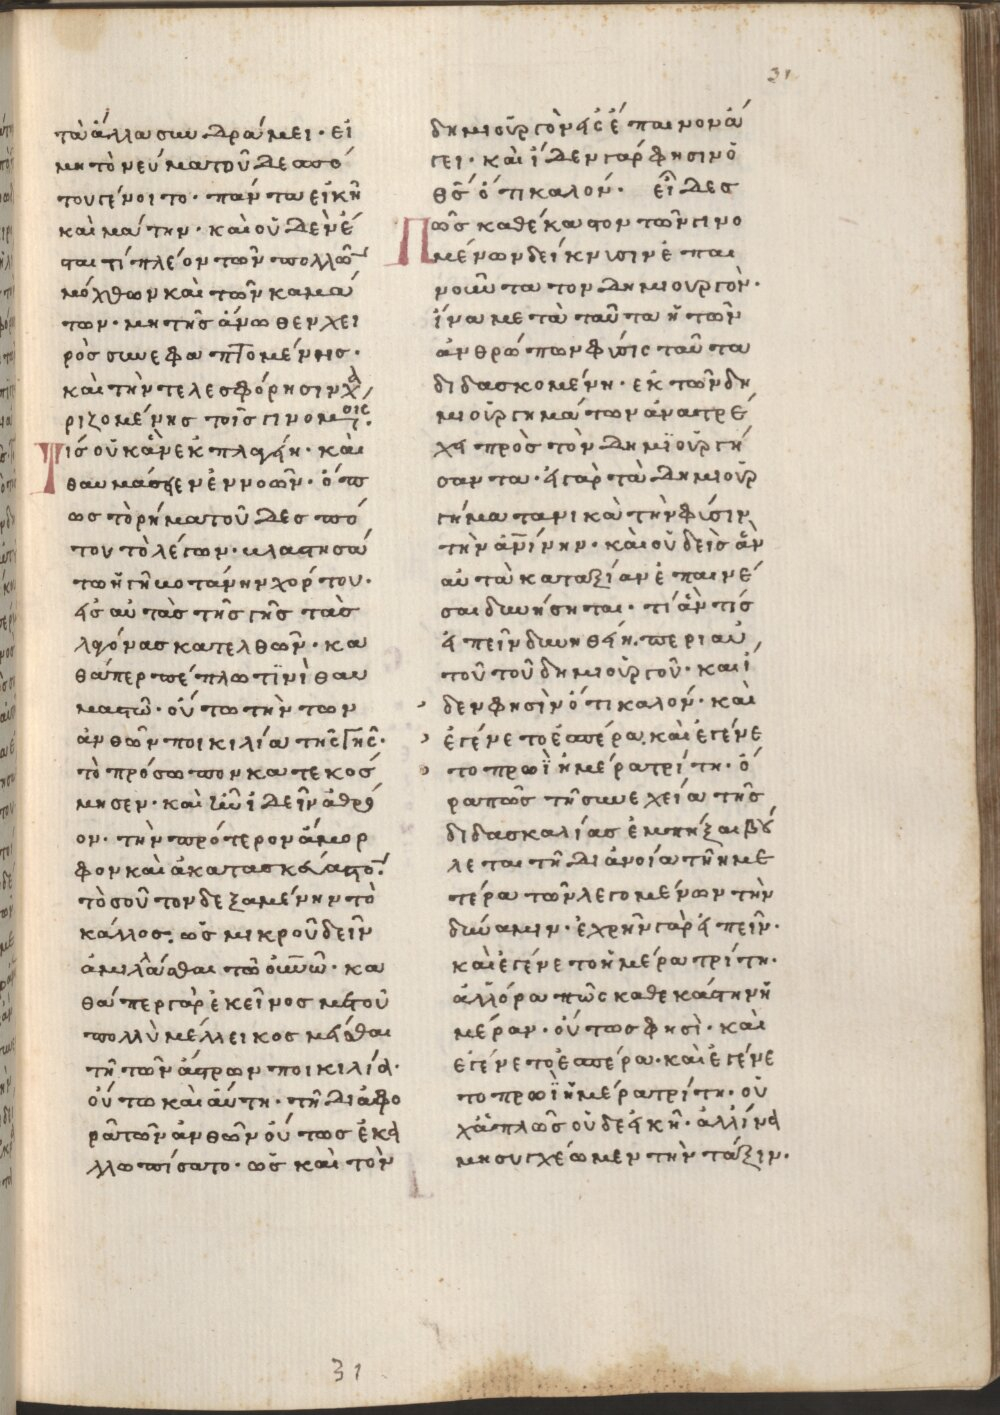 31
τὰ ἄλλα συνδράμει· εἰ
μὴ τὸ νεῦμα τοῦ δεσπό
του γένοιτο· πάντα εἰκῆ
καὶ μάτην· καὶ οὐδὲν ἔ
σται τί πλέον τῶν πολλῶν
μόχθων καὶ τῶν καμά
των· μὴ τῆς ἄνωθεν χει
ρὸς συνεφαπτομένης·
καὶ τὴν τελεσφόρησιν χα
ριζομένης τοῖς γινομένοις·
Τίς οὐκ ἂν ἐκπλαγείη· καὶ
θαυμάσειεν ἐννοῶν· ὅπ
ως τὸ ῥῆμα τοῦ δεσπό
του τὸ λέγων· βλαστησά
τω ἡ γῆ βοτάνην χόρτου·
εἰς αὐτὰς τῆς γῆς τὰς
λαγόνας κατελθῶν· κα
θάπερ πέπλω τινὶ θαυ
μαστῶ· οὕτω τὴν τῶν
ἀνθῶν ποικιλία τῆς γῆς·
τὸ πρόσωπον κατεκόσ
μησεν· καὶ ἦν ἰδεῖν ἀθρό
ον· τὴν πρότερον ἄμορ
φον καὶ ἀκατασκεύαστον·
τὸσοῦτον δεξαμένην τὸ
κάλλος· ὡς μικροῦ δεῖν
ἁμιλλᾶσθαι τῶ οὐνῶ· κα
θάπερ γὰρ ἐκεῖνος μετοῦ
πολλὺ μέλλει κοσμεῖσθαι
τῆ τῶν ἄστρων ποικιλία·
οὕτω καὶ αὕτη· τῆ διαφο
ρᾶ τῶν ἀνθῶν οὕτως ἐκα
λλωπίσατο· ὡς καὶ τὸν
δημιοῦργὸν εἰς ἔπαινον ἄ
γει· καὶ ἴδεν γάρ φησιν ὁ
θς ὅτι καλόν· εἶδες
Πῶς καθέκαστον τῶν γινο
μένων δείκνυσιν ἐπαι
νοῦντα τον δημιουργὸν·
ἵνα μετὰ ταῦτα ἡ τῶν
ἀνθρώπων φύσις ταῦτα
διδασκομένη· ἐκ τῶν δη
μιοῦργημάτων ἀνατρέ
χει πρὸς τὸν δημϊουργή
σαντα· εἰ γὰρ τὰ δημιουρ
γήματα νικὰ τὴν φύσιν
τὴν ἀνίνην· καὶ οὐδεὶς ἂν
αὐτὰ καταξίαν ἐπαινέ
σαι δυνήσηται· τί ἂν τίς
εἰπεῖν δυνηθείη· περι αὐ
τοῦ τοῦ δημιοῦργοῦ· καὶ ἴ
δεν φησὶν ὅτι καλόν· καὶ
ἐγένετο ἑσπέρα, καὶ ἐγένε
το πρωῒ ἡμέρα τρίτη· ὅ
ρα πῶς τῆ συνεχεία τῆς
διδασκαλίας ἐμπῆξαι βού
λεται τῆ διανοία τῆ ἡμε
τέρα τῶν λεγομένων τὴν
δύναμιν· ἐχρῆν γὰρ εἰπεῖν·
καὶ ἐγένετο ἡμέρα τρίτη·
ἀλλ' ὅρα πῶς καθεκάστην ἡ
μέραν· οὕτως φησὶ· καὶ
ἐγένετο ἑσπέρα· καὶ ἐγένε
το πρωῒ ἡμέρα τρίτη· οὐ
χ ἁπλῶς οὐδὲ εἰκῆ· ἀλλ' ἵνα
μὴ συγχέωμεν τὴν τάξιν·
31